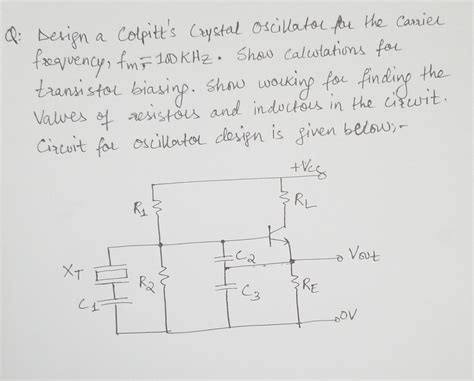 Q: Design a Colpitt's Crystal Oscillator for the Carrier
frequency, fm = 100 KHz. Show Calculations for
transistor biasing. Show working for finding the
Values of resistors and inductors in the circuit.
Circuit for oscillator design is given below:-
+Vcc
R1
RL
XT
R2
C2
Vout
C1
C3
RE
0V